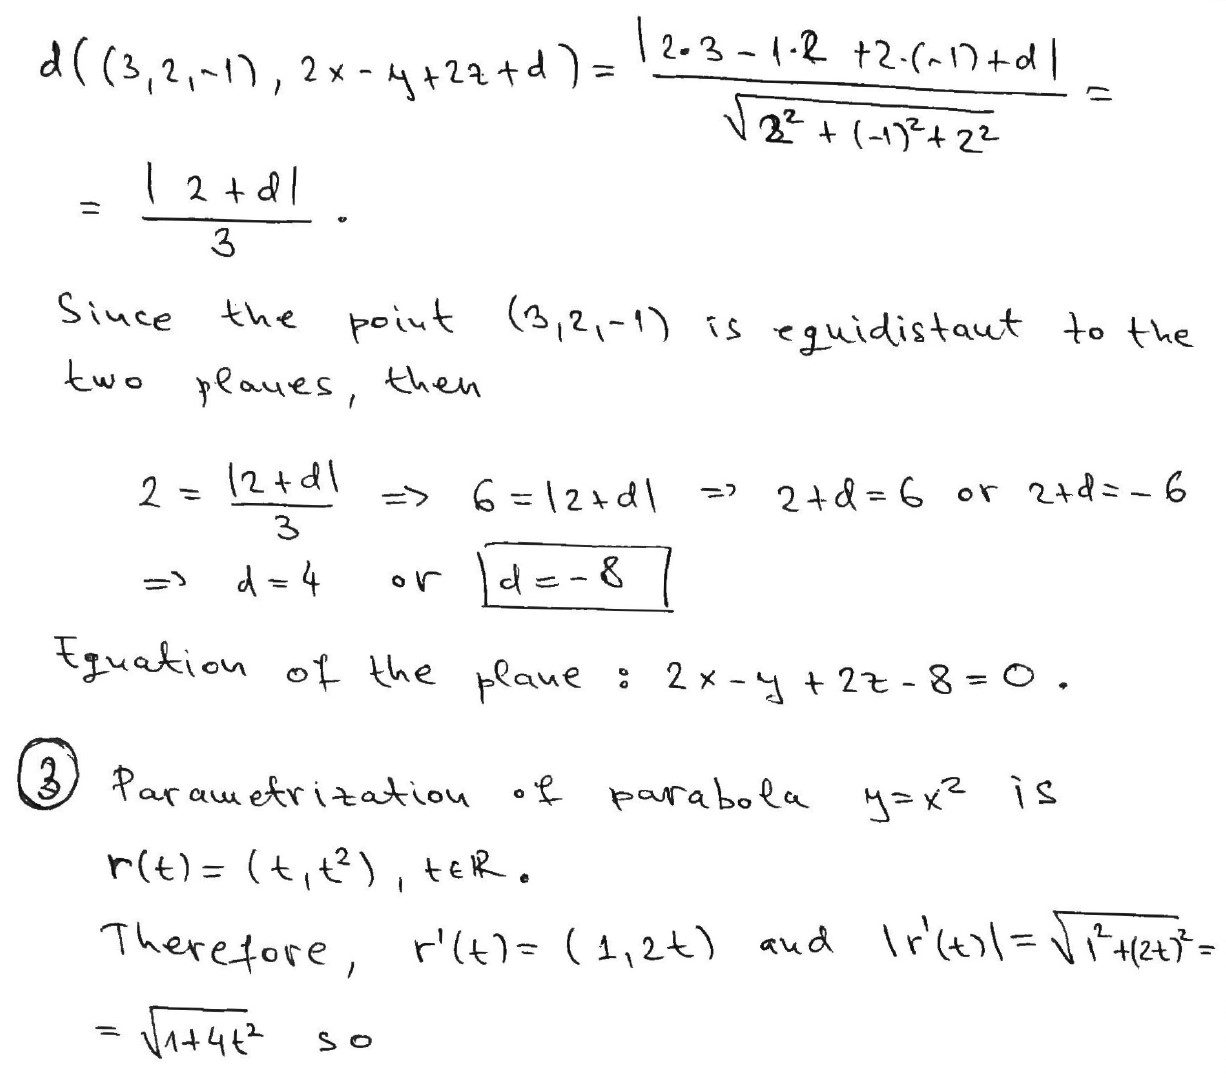 d((3,2,-1), 2x-y+2z+d) = |2·3 - 1·2 + 2·(-1)+d| / √(2² + (-1)² + 2²) =
= |2+d| / 3 .
Since the point (3,2,-1) is equidistant to the
two planes, then
2 = |2+d| / 3 => 6 = |2+d| => 2+d=6 or 2+d=-6
=> d=4 or d=-8
Equation of the plane : 2x-y+2z-8=0.
③ Parametrization of parabola y=x² is
r(t) = (t,t²), t∈ℝ.
Therefore, r'(t)= (1,2t) and |r'(t)|=√(1²+(2t)²) =
= √(1+4t²) so